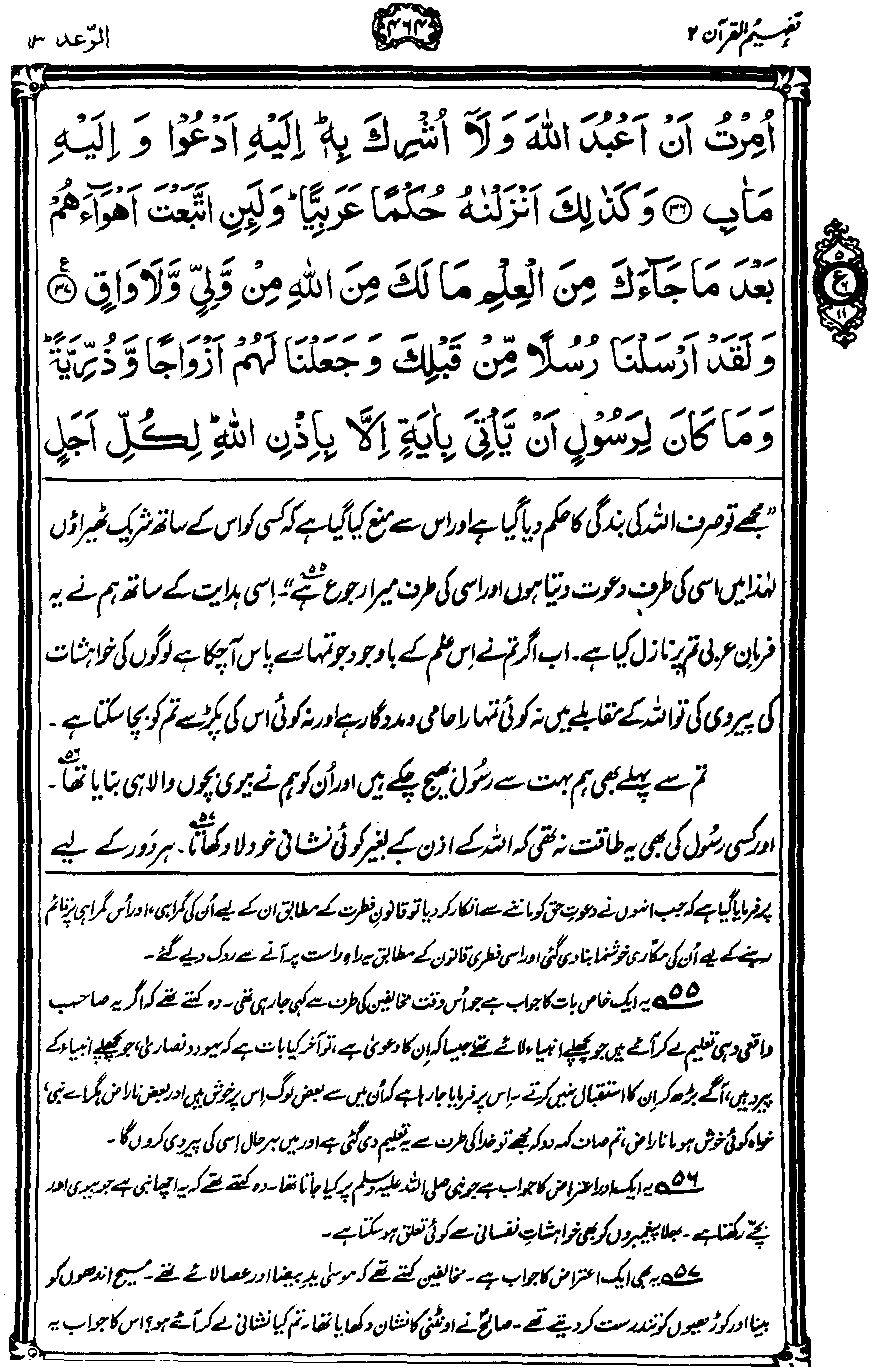 تفہیم القرآن ۲
۴۶۴
الرّعد ۱۳
اُمِرْتُ اَنْ اَعْبُدَ اللّٰهَ وَلَآ اُشْرِكَ بِهٖ ؕ اِلَيْهِ اَدْعُوْا وَ اِلَيْهِ
مَاٰبِ ﴿۳۶﴾ وَكَذٰلِكَ اَنْزَلْنٰهُ حُكْمًا عَرَبِيًّا ؕ وَلَىِٕنِ اتَّبَعْتَ اَهْوَآءَهُمْ
بَعْدَ مَا جَآءَكَ مِنَ الْعِلْمِ مَا لَكَ مِنَ اللّٰهِ مِنْ وَّلِيٍّ وَّلَا وَاقٍ ﴿۳۷﴾ ع
۵
ع
۶
۱۱
وَلَقَدْ اَرْسَلْنَا رُسُلًا مِّنْ قَبْلِكَ وَجَعَلْنَا لَهُمْ اَزْوَاجًا وَّذُرِّيَّةً ؕ
وَمَا كَانَ لِرَسُوْلٍ اَنْ يَّاْتِيَ بِاٰيَةٍ اِلَّا بِاِذْنِ اللّٰهِ ؕ لِكُلِّ اَجَلٍ
”مجھے تو صرف اللہ کی بندگی کا حکم دیا گیا ہے اور اس سے منع کیا گیا ہے کہ کسی کو اس کے ساتھ شریک ٹھیراؤں
لہٰذا میں اسی کی طرف دعوت دیتا ہوں اور اسی کی طرف میرا رجوع ہے۵۵“۔ اِسی ہدایت کے ساتھ ہم نے یہ
فرمانِ عربی تم پر نازل کیا ہے۔ اب اگر تم نے اِس علم کے باوجود جو تمہارے پاس آچکا ہے لوگوں کی خواہشات
کی پیروی کی تو اللہ کے مقابلے میں نہ کوئی تمہارا حامی و مددگار ہے اور نہ کوئی اس کی پکڑ سے تم کو بچا سکتا ہے۔
تم سے پہلے بھی ہم بہت سے رسُول بھیج چکے ہیں اور اُن کو ہم نے بیوی بچوں والا ہی بنایا تھا۵۶۔
اور کسی رسُول کی بھی یہ طاقت نہ تھی کہ اللہ کے اذن کے بغیر کوئی نشانی خود لا دکھاتا۵۷۔ ہر دَور کے لیے
پر فرمایا گیا ہے کہ جب انہوں نے دعوتِ حق کو ماننے سے انکار کر دیا تو قانونِ فطرت کے مطابق ان کے لیے اُن کی گمراہی، اور اُس گمراہی پر قائم
رہنے کے لیے اُن کی مکّاری خوشنما بنا دی گئی اور اسی فطری قانون کے مطابق یہ راہِ راست پر آنے سے روک دیے گئے۔
۵۵ یہ ایک خاص بات کا جواب ہے جو اُس وقت مخالفین کی طرف سے کہی جا رہی تھی۔ وہ کہتے تھے کہ اگر یہ صاحب
واقعی وہی تعلیم لے کر آئے ہیں جو پچھلے انبیاء لائے تھے جیسا کہ اِن کا دعویٰ ہے، تو آخر کیا بات ہے کہ یہود و نصاریٰ، جو پچھلے انبیاء کے
پیرو ہیں، آگے بڑھ کر اِن کا استقبال نہیں کرتے۔ اِس پر فرمایا جا رہا ہے کہ اُن میں سے بعض لوگ اِس پر خوش ہیں اور بعض ناراض، مگر اے نبی،
خواہ کوئی خوش ہو یا ناراض، تم صاف کہہ دو کہ مجھے تو خدا کی طرف سے یہ تعلیم دی گئی ہے اور میں بہر حال اِسی کی پیروی کروں گا۔
۵۶ یہ ایک اور اعتراض کا جواب ہے جو نبی صلی اللہ علیہ وسلم پر کیا جاتا تھا۔ وہ کہتے تھے کہ یہ اچھا نبی ہے جو بیوی اور
بچے رکھتا ہے۔ بھلا پیغمبروں کو بھی خواہشاتِ نفسانی سے کوئی تعلق ہو سکتا ہے۔
۵۷ یہ بھی ایک اعتراض کا جواب ہے۔ مخالفین کہتے تھے کہ موسیٰ یدِ بیضا اور عصا لائے تھے۔ مسیح اندھوں کو
بینا اور کوڑھیوں کو تندرست کر دیتے تھے۔ صالحؑ نے اونٹنی کا نشان دکھایا تھا۔ تم کیا نشانی لے کر آئے ہو؟ اس کا جواب یہ